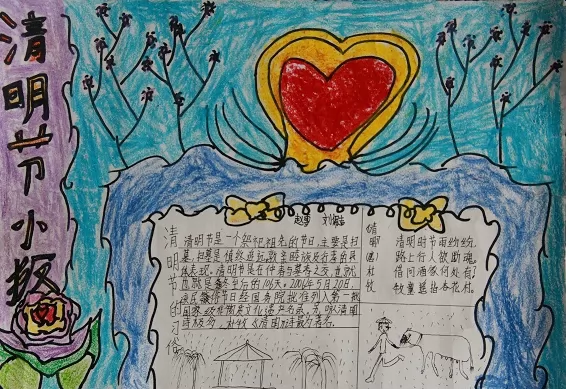 清明节小报
清明节的习俗
清明节是一个祭祀祖先的节日,主要是扫
墓,扫墓是慎终追远
体表现。清明节是在仲春与暮春之交,也就
是冬至后的106天。2006年5月20日,
该民俗节日经国务院批准列入第一批
国家级非物质文化遗产名录。
杜牧《清明》
清明
(唐)
杜牧
清明时节雨纷纷,
路上行人欲断魂。
借问酒家何处有?
牧童遥指杏花村。